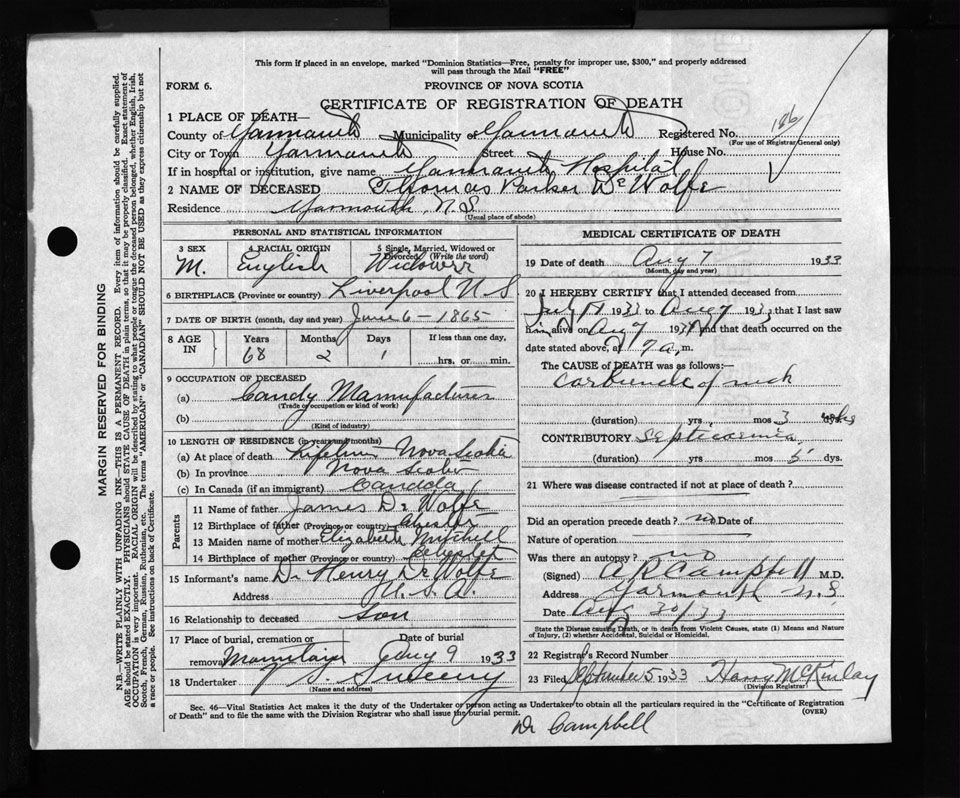 This form if placed in an envelope, marked "Dominion Statistics—Free, penalty for improper use, $300," and properly addressed
will pass through the Mail "FREE"
FORM 6.
PROVINCE OF NOVA SCOTIA
CERTIFICATE OF REGISTRATION OF DEATH
1 PLACE OF DEATH—
County of Yarmouth Municipality of Yarmouth Registered No. 186
(For use of Registrar General only)
City or Town Yarmouth Street House No.
If in hospital or institution, give name Yarmouth Hospital
2 NAME OF DECEASED Thomas Parker DeWolfe
Residence Yarmouth, N.S
(Usual place of abode)
PERSONAL AND STATISTICAL INFORMATION
3 SEX 4 RACIAL ORIGIN 5 Single, Married, Widowed or Divorced (Write the word)
M. English Widower
6 BIRTHPLACE (Province or country) Liverpool N S
7 DATE OF BIRTH (month, day and year) June 6 - 1865
8 AGE IN Years Months Days If less than one day,
68 2 1 hrs. or min.
9 OCCUPATION OF DECEASED
(a) Candy Manufacturer
(Trade or occupation or kind of work)
(b)
(Kind of industry)
10 LENGTH OF RESIDENCE (in years and months)
(a) At place of death Lifetime Nova Scotia
(b) In province Nova Scotia
(c) In Canada (if an immigrant) Canada
Parents
11 Name of father James DeWolfe
12 Birthplace of father (Province or country) Chester
13 Maiden name of mother Elizabeth Mitchell
14 Birthplace of mother (Province or country) Chester
15 Informant's name Dr Henry DeWolfe
Address U.S.A.
16 Relationship to deceased Son
17 Place of burial, cremation or removal Date of burial
Aug 9 1933
18 Undertaker V S. Sweeny
(Name and address)
MEDICAL CERTIFICATE OF DEATH
19 Date of death Aug 7 1933
(Month, day and year)
20 I HEREBY CERTIFY that I attended deceased from
July 1933 to Aug 7 1933 that I last saw
him alive on Aug 7 193 and that death occurred on
date stated above, at 7 a. m.
The CAUSE of DEATH was as follows:
Carbuncle of neck
(duration) yrs mos 3 wks
CONTRIBUTORY Septicaemia
(duration) yrs. mos 5 dys.
21 Where was disease contracted if not at place of death?
Did an operation precede death? no Date of
Nature of operation
Was there an autopsy? no
(Signed) A R Campbell M.D.
Address Yarmouth N.S.
Date Aug 30/33
State the Disease causing Death, or in death from Violent Causes, state (1) Means and Nature
of Injury, (2) whether Accidental, Suicidal or Homicidal.
22 Registrars Record Number
23 Filed September 5 1933 Harry McKinlay
(Division Registrar)
Sec. 46—Vital Statistics Act makes it the duty of the Undertaker or person acting as Undertaker to obtain all the particulars required in the "Certificate of Registration
of Death" and to file the same with the Division Registrar who shall issue the burial permit.
(OVER)
Dr Campbell
MARGIN RESERVED FOR BINDING
N.B.—WRITE PLAINLY WITH UNFADING INK—THIS IS A PERMANENT RECORD. Every item of information should be carefully supplied.
AGE should be stated EXACTLY. PHYSICIANS should STATE CAUSE OF DEATH in plain terms, so that it may be properly classified. Exact statement of
OCCUPATION is very important. RACIAL ORIGIN will be described by stating to what people or tongue the deceased person belonged, whether English, Irish,
Scotch, French, German, Russian, Ruthenian, etc. The terms "AMERICAN" or "CANADIAN" SHOULD NOT BE USED as they express citizenship but not
a race or people. See instructions on back of Certificate.